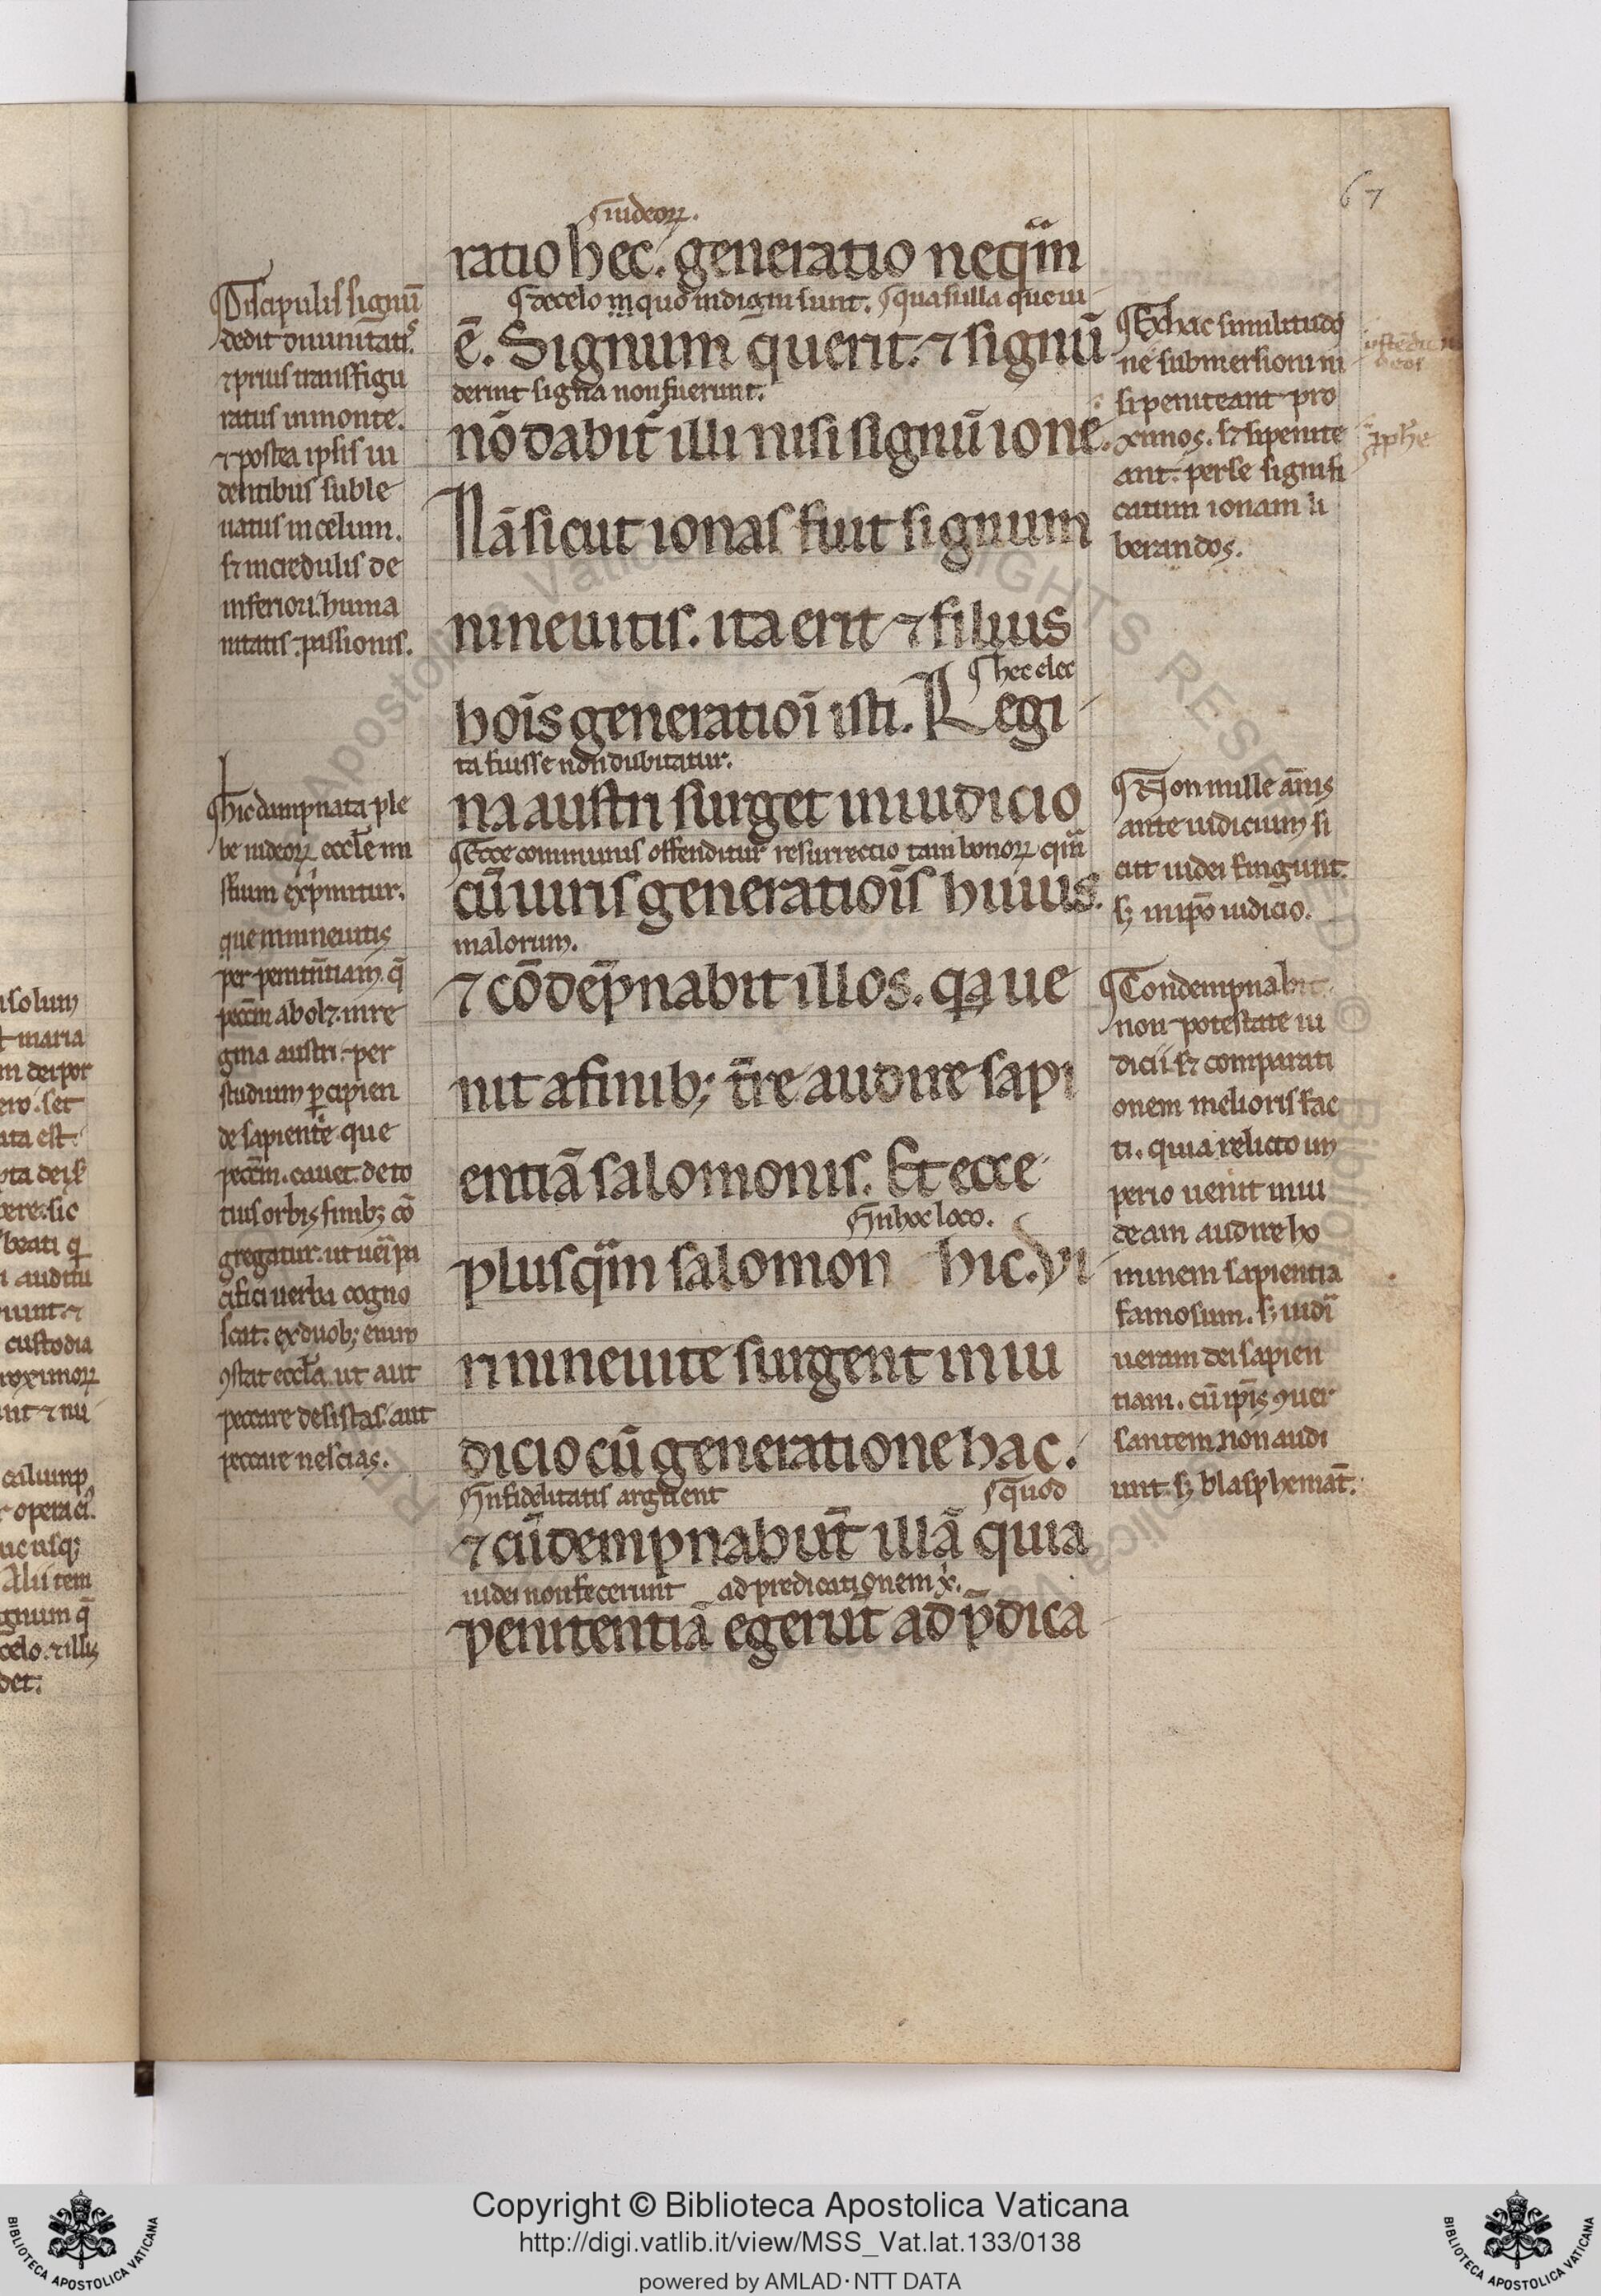 67
iudeoꝝ.
ratio hec. generatio neqͣm
de celo in quo indigni sunt. quasi illa que ui
ē. Signum querit. ⁊ signū
derint signa non fuerunt.
nō dabit̄ illi nisi signū ione.
Nā sicut ionas fuit signum
nineuitis. ita erit ⁊ filius
hec elec
hoīs generatioī isti. Regi
ta fuisse non dubitatur.
na austri surget in iudicio
Ecce communis ostenditur resurrectio tam bonoꝝ qͣm
cū uiris generatiōis huius.
malorum.
⁊ cōdēpnabit illos. qͥa ue
nit a finib; t̄re audire sapi
entiā salomonis. Et ecce
In hoc loco.
plusqͣm salomon hic. Vi
ri nineuite surgent in iu
dicio cū generatione hac.
Infidelitatis arguent quod
⁊ cūdempnabūt illā quia
iudei non fecerunt ad predicationem x̄.
penitentiā egerūt ad p̄dica
Discipulis signū
dedit diuinitatis.
⁊ prius transfigu
ratus in monte.
⁊ postea ipsis ui
dentibus suble
uatus in celum.
s; incredulis de
inferiori. huma
nitatis. passionis.
hic dampnata ple
be iudeoꝝ eccl̄e mi
sterium exp̄mitur.
que in nineuitis
per penitn̄tiam. q̄
pecc̄m abolet. in re
gina austri. per
studium ꝑcipien
de sapientie. que
pecc̄m. cauet. de to
tius orbis finib; cō
gregatur. ut uerī pa
cifici uerba cogno
scat. ex duob; enim
ꝯstat eccl̄a. ut aut
peccare desistas. aut
peccare nescias.
Ex hac similitudi
ne submersioni ni
si peniteant pro
ximos. s; si penite
ant. per se signifi
catum ionam li
berandos.
Non mille annis
ante iudicium si
cut iudei fingunt.
s; in ipō iudicio.
Condempnabit.
non potestate iu
dicii. s; comparati
onem melioris fac
ti. quia relicto im
perio uenit in iu
deam audire ho
minem sapientia
famosum. s; iudī
ueram dei sapien
tiam. cū ip̄is ꝯuer
santem. non audi
unt. s; blasphemāt.
Copyright © Biblioteca Apostolica Vaticana
http://digi.vatlib.it/view/MSS_Vat.lat.133/0138
powered by AMLAD·NTT DATA
BIBLIOTECA APOSTOLICA VATICANA
BIBLIOTECA APOSTOLICA VATICANA